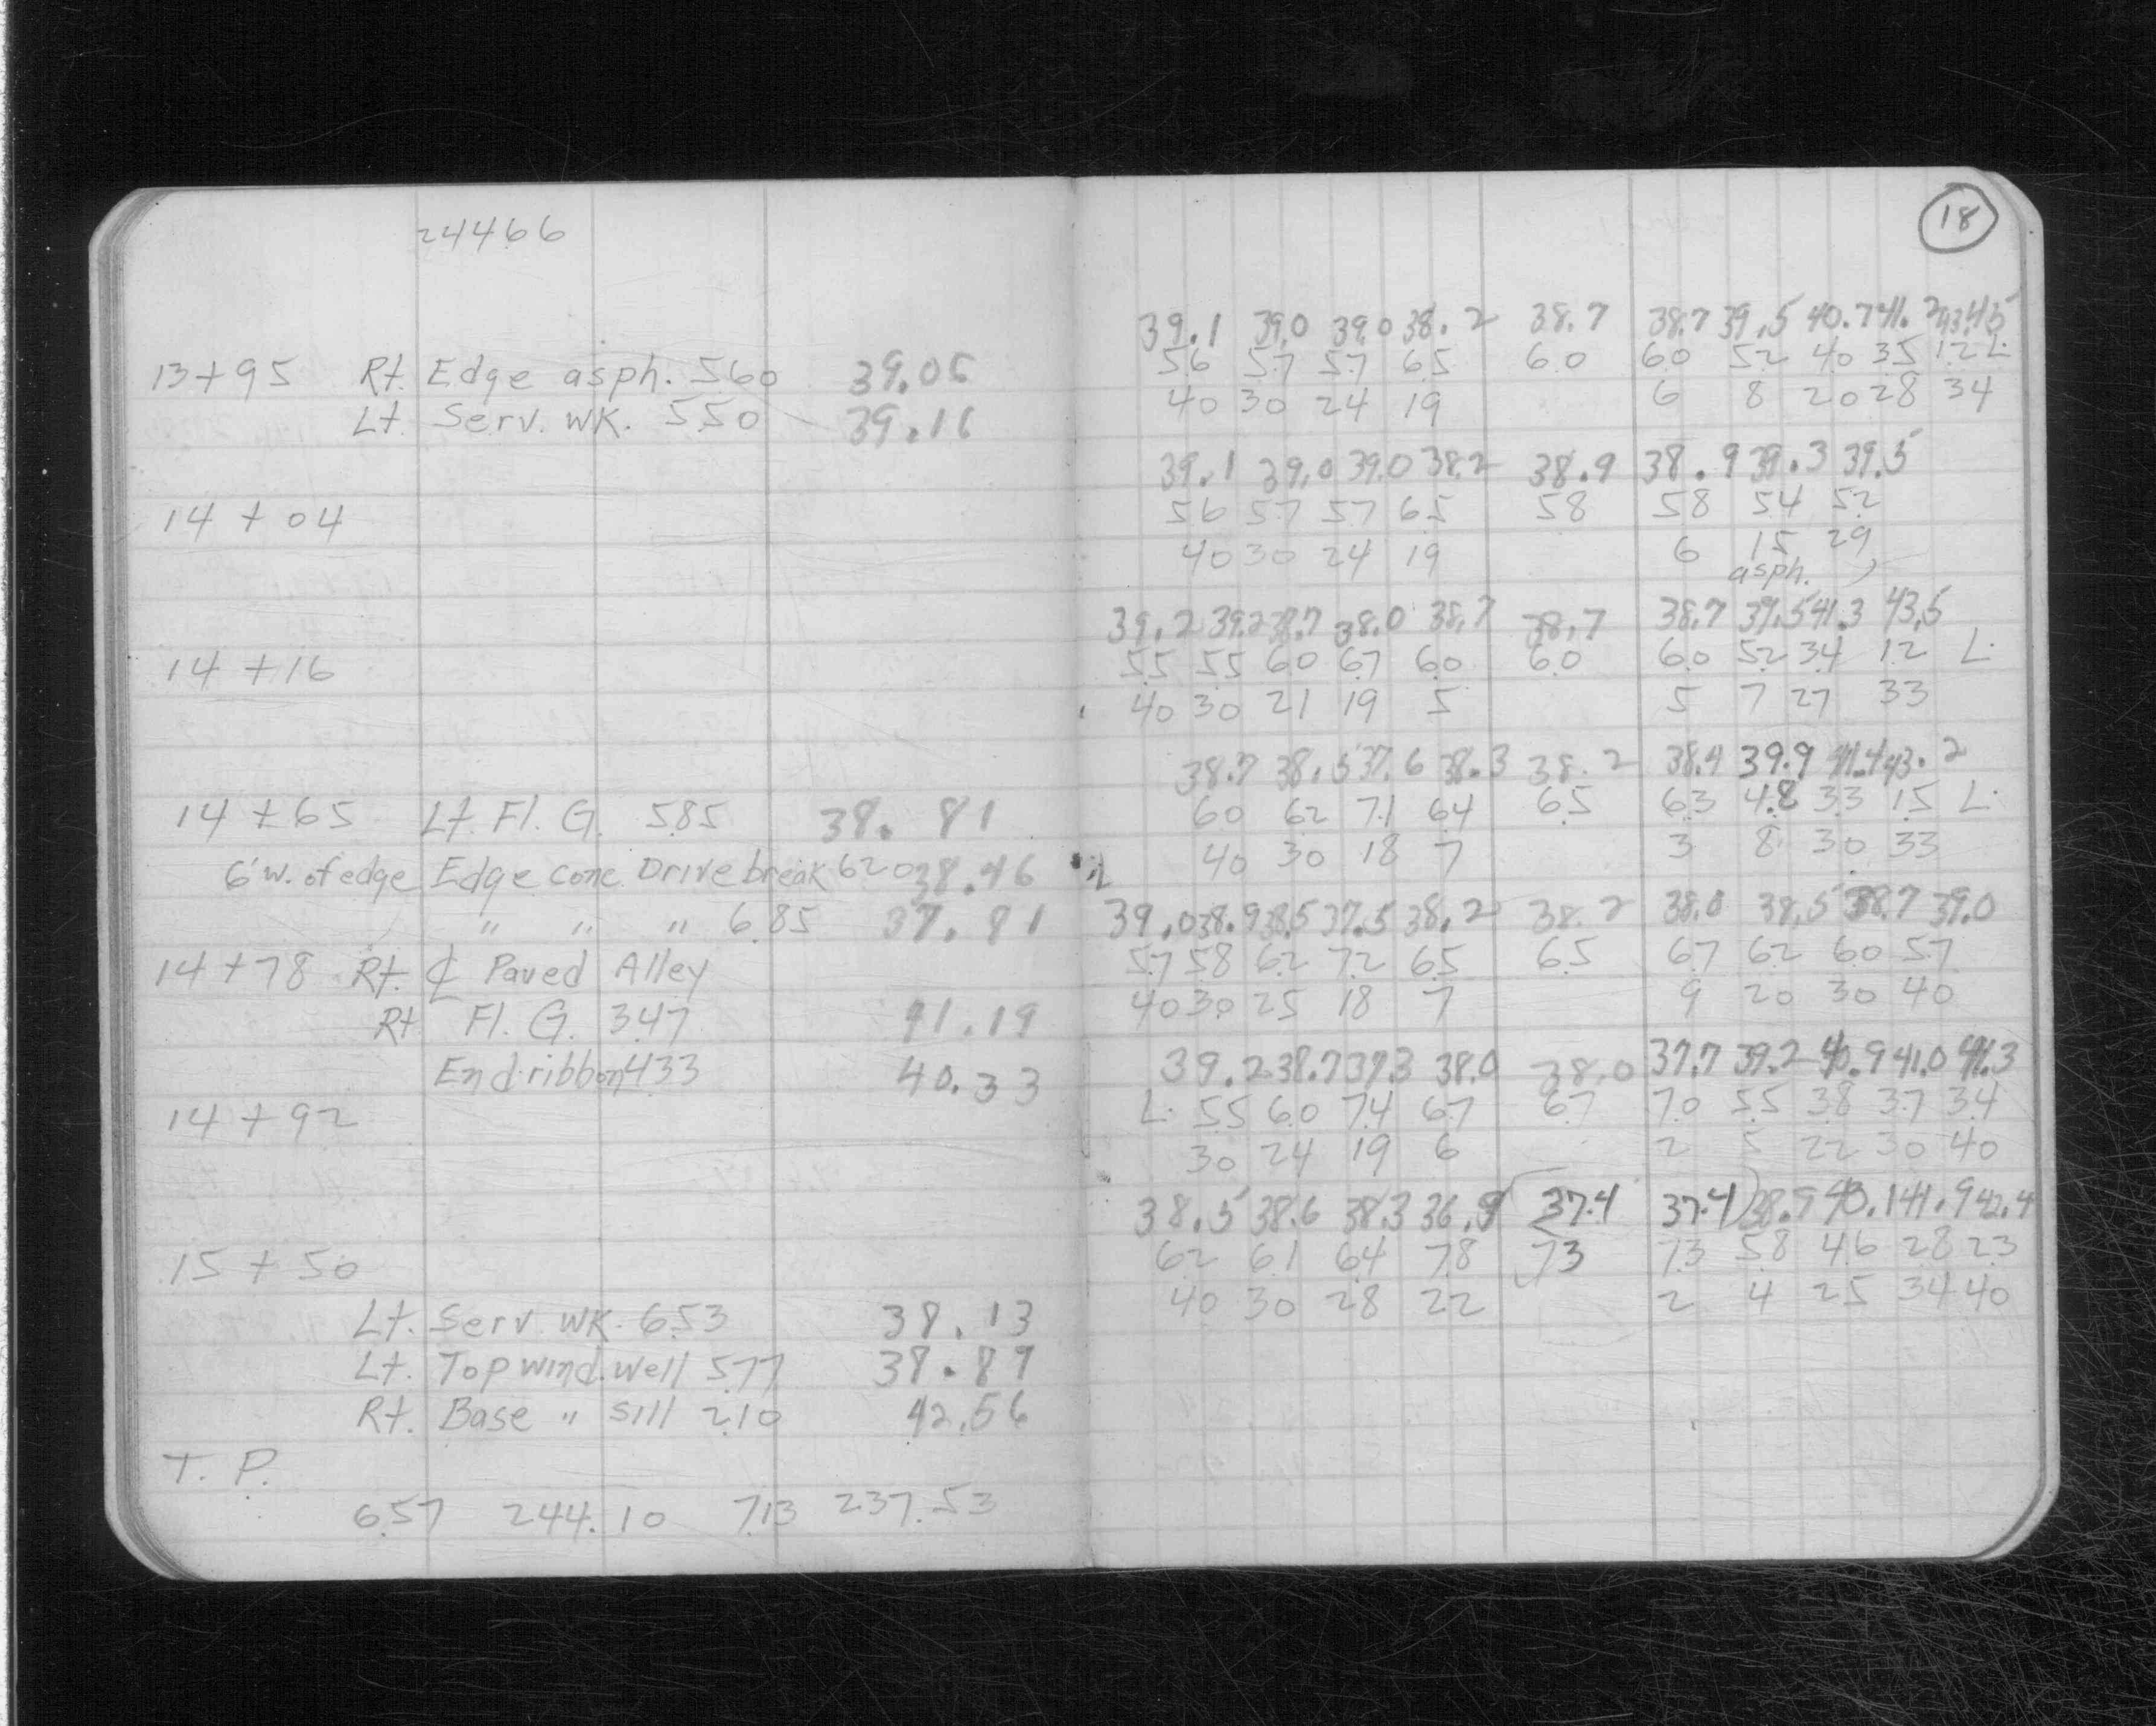 24466
13+95 Rt. Edge asph. 560 39.06
Lt. Serv. WK. 550 39.16
14 + 04
14 + 16
14 + 65 Lt. Fl. G. 585 38.81
6' W. of edge Edge conc Drive break 620 38.46
" " " 6.85 37.81
14+78 Rt. ℄ Paved Alley
Rt Fl. G. 347 41.19
End ribbon 433 40.33
14 + 92
15 + 50
Lt. Serv WK. 653 38.13
Lt. Top wind. well 577 38.89
Rt. Base " sill 210 42.56
T. P.
6.57 244.10 713 237.53
18
39.1 39.0 39.0 38.2 38.7 38.7 39.5 40.7 41.2 43.45
56 57 57 65 60 60 52 40 35 12 L.
40 30 24 19 6 8 20 28 34
39.1 39.0 39.0 38.2 38.9 38.9 39.3 39.5
56 57 57 65 58 58 54 52
40 30 24 19 6 15 29
asph.
39.2 39.2 38.7 38.0 38.7 38.7 38.7 39.5 41.3 43.5
55 55 60 67 60 60 60 52 34 12 L.
40 30 21 19 5 5 7 27 33
38.7 38.5 37.6 38.3 38.2 38.4 39.9 41.4 43.2
60 62 71 64 65 63 4.8 33 15 L.
40 30 18 7 3 8 30 33
39.0 38.9 38.5 37.5 38.2 38.2 38.0 38.5 38.7 39.0
57 58 62 72 65 65 67 62 60 57
40 30 25 18 7 9 20 30 40
39.2 38.7 37.3 38.0 38.0 37.7 39.2 40.9 41.0 41.3
L. 55 60 74 67 67 70 55 38 37 34
30 24 19 6 2 5 22 30 40
38.5 38.6 38.3 36.9 37.4 37.4 38.9 40.1 41.9 42.4
62 61 64 78 73 73 58 46 28 23
40 30 28 22 2 4 25 34 40